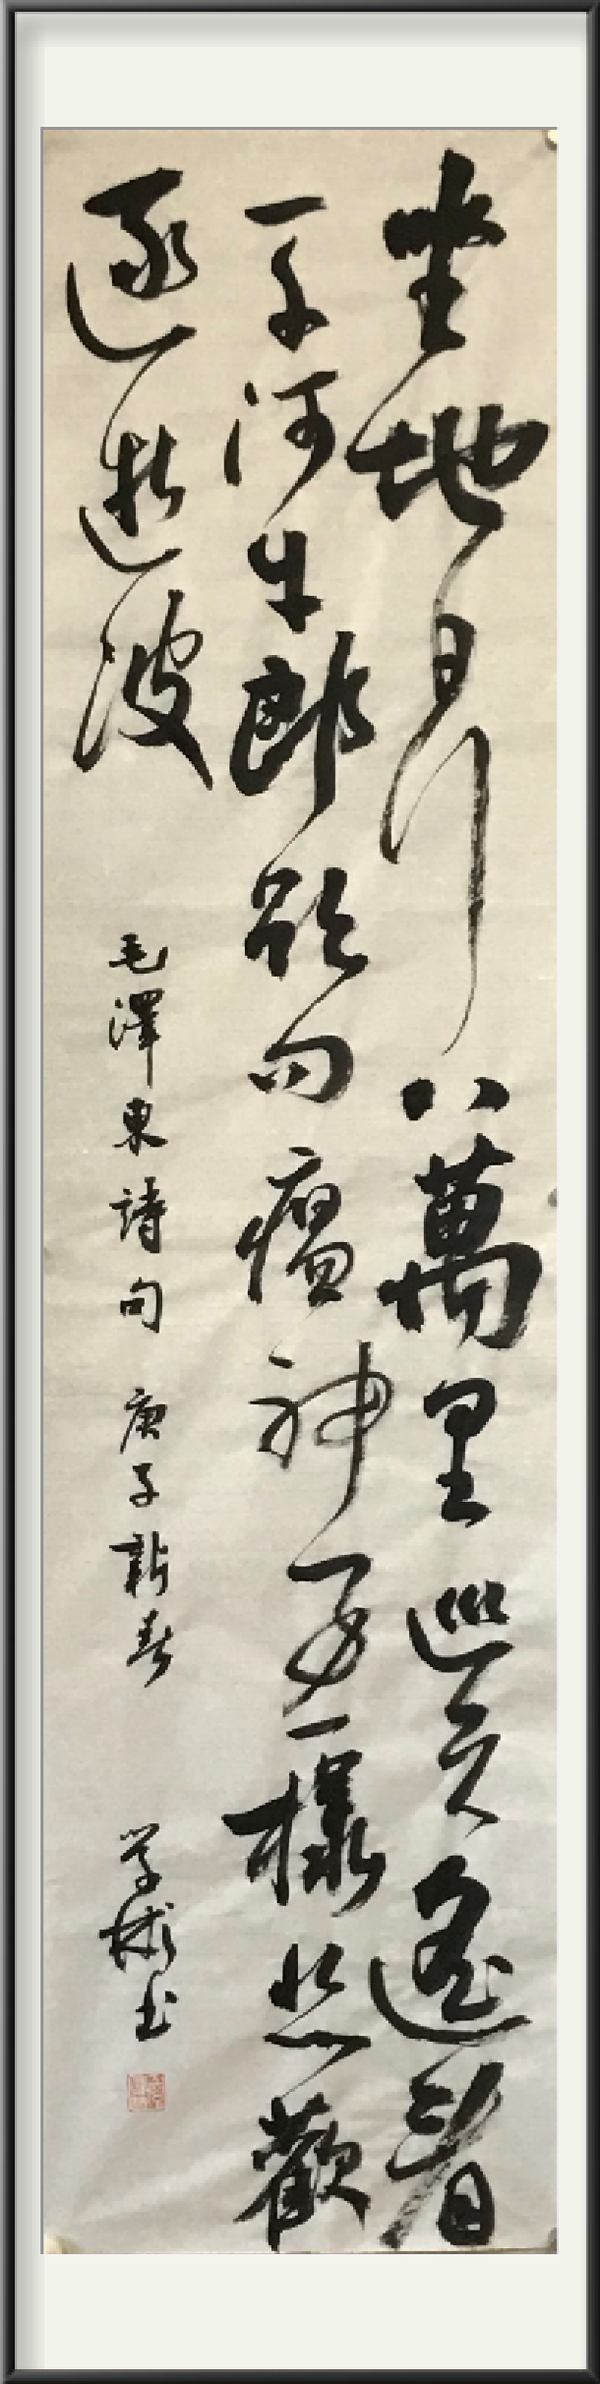 坐地日行八萬里巡天遙看
一千河牛郎欲问瘟神事一樣悲歡
逐逝波
毛澤東詩句 庚子新春 学书